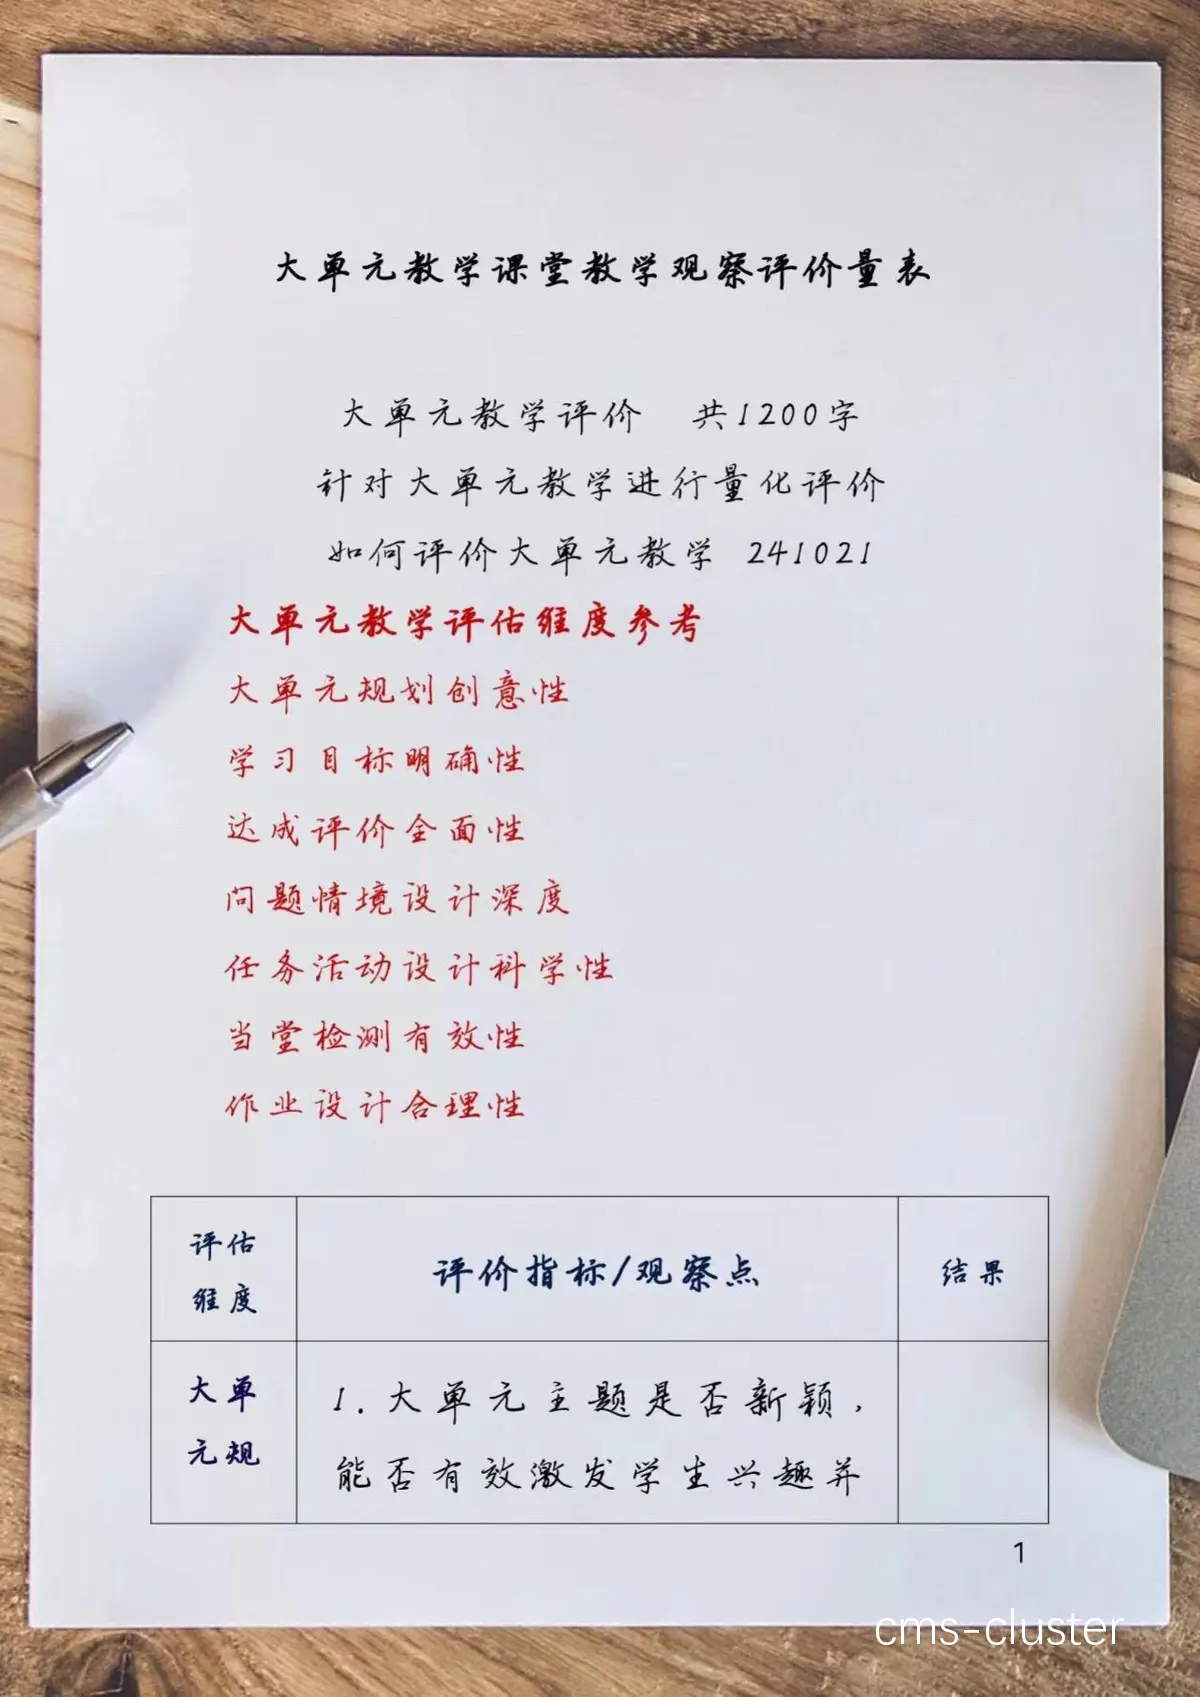 大单元教学课堂教学观察评价量表
大单元教学评价 共1200字
针对大单元教学进行量化评价
如何评价大单元教学 241021
大单元教学评估维度参考
大单元规划创意性
学习目标明确性
达成评价全面性
问题情境设计深度
任务活动设计科学性
当堂检测有效性
作业设计合理性
评估
维度
评价指标/观察点
结果
大单
元规
1.大单元主题是否新颖，
能否有效激发学生兴趣并
1
cms-cluster